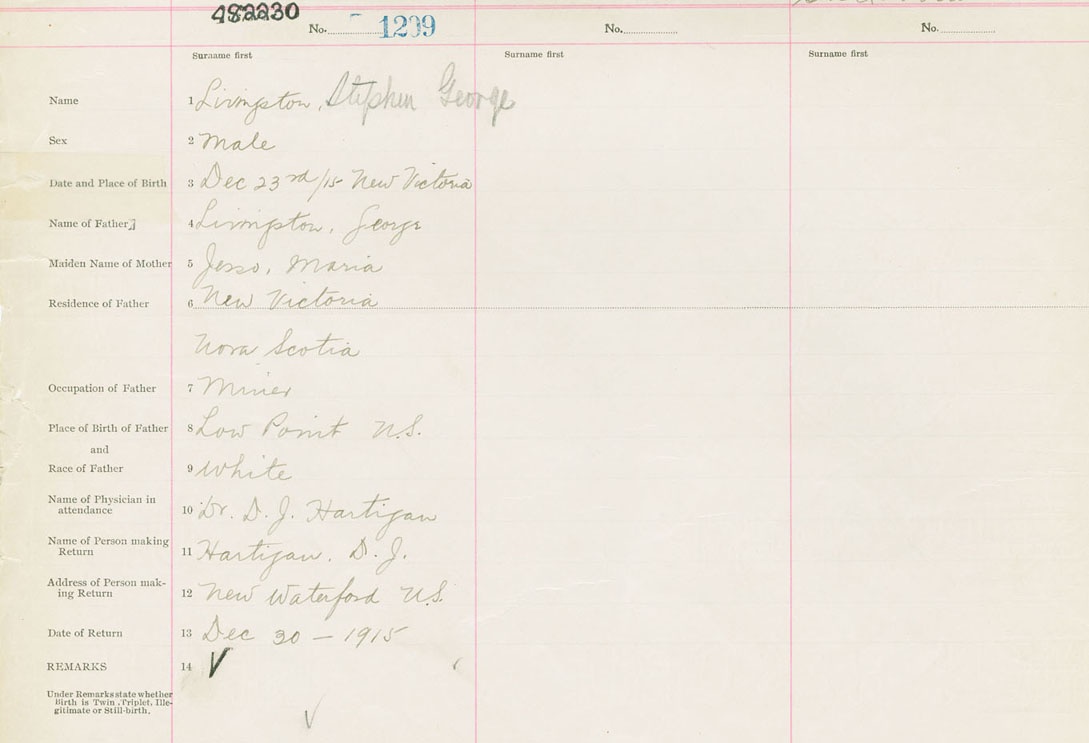 482230
No. 1209 No. No.
Surname first Surname first Surname first
Name 1 Livingston, Stephen George
Sex 2 Male
Date and Place of Birth 3 Dec 23rd/15 New Victoria
Name of Father 4 Livingston, George
Maiden Name of Mother 5 Jesso, Maria
Residence of Father 6 New Victoria
Nova Scotia
Occupation of Father 7 Miner
Place of Birth of Father 8 Low Point N.S.
and
Race of Father 9 White
Name of Physician in
attendance 10 Dr. D. J. Hartigan
Name of Person making
Return 11 Hartigan. D. J.
Address of Person mak-
ing Return 12 New Waterford N.S.
Date of Return 13 Dec 30 – 1915
REMARKS 14 ✓
Under Remarks state whether
Birth is Twin, Triplet, Ille-
gitimate or Still-birth.